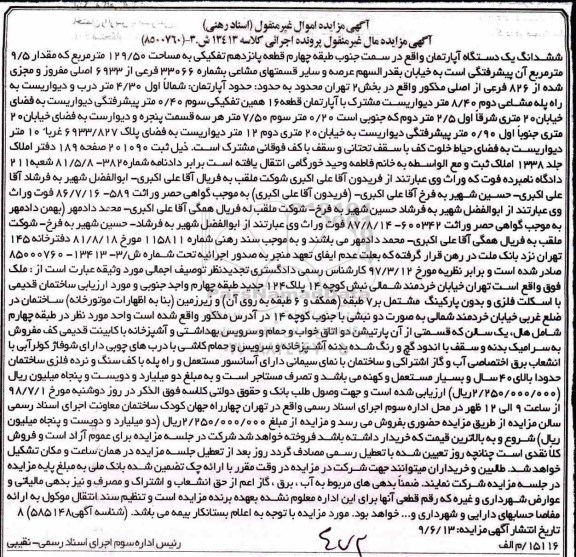 آگهی مزایده اموال غیرمنقول (اسناد رهنی)
آگهی مزایده مال غیرمنقول پرونده اجرائی کلاسه ۱۳۴۱۳ ش.۳-(۸۵۰۰۷۶۰)
ششدانگ یک دستگاه آپارتمان واقع در سمت جنوب طبقه چهارم قطعه پانزدهم تفکیکی به مساحت ۱۲۹/۵۰ مترمربع که مقدار ۹/۵
مترمربع آن پیشرفتگی است به خیابان بقدرالسهم عرصه و سایر قسمتهای مشاعی بشماره ۳۳۰۶۶ فرعی از ۶۹۳۳ اصلی مفروز و مجزی
شده از ۸۲۶ فرعی از اصلی مذکور واقع در بخش ۲ تهران محدود به حدود: حدود آپارتمان: شمالاً اول ۴/۳۰ متر درب و دیواریست به
راه پله مشاعی دوم ۸/۴۰ متر دیواریست مشترک با آپارتمان قطعه ۱۶ همین تفکیکی سوم ۰/۴۰ متر پیشرفتگی دیواریست به فضای
خیابان ۲۰ متری شرقاً اول ۲/۵ متر دوم که جنوبی است ۰/۲۰ متر سوم ۷/۵۰ متر هر سه قسمت پنجره و دیواریست به فضای خیابان ۲۰
متری جنوباً اول ۰/۹۰ متر پیشرفتگی دیواریست به خیابان ۲۰ متری دوم ۱۲ متر دیواریست به فضای پلاک ۶۹۳۳/۸۲۷ غرباً ۱۰ متر
دیواریست به فضای حیاط خلوت کف با سقف تحتانی و سقف با کف فوقانی مشترک است. ذیل ثبت ۲۰۱۰۹۰ صفحه ۱۸۹ دفتر املاک
جلد ۱۳۳۸ املاک ثبت و مع الواسطه به خانم فاطمه وحید خورگامی انتقال یافته است برابر دادنامه شماره ۳۸۲-۸۱/۵/۸ شعبه ۲۱۱
دادگاه نامبرده فوت که وراث وی عبارتند از فریدون آقا علی اکبری شوکت ملقب به فریال آقا علی اکبری- ابوالفضل شهیر به فرشاد آقا
علی اکبری- حسین شهیر به فرخ آقا علی اکبری- (فریدون آقا علی اکبری) به موجب گواهی حصر وراثت ۵۸۹- ۸۶/۷/۱۶ فوت وراث
وی عبارتند از ابوالفضل شهیر به فرشاد حسین شهیر به فرخ- شوکت ملقب له فریال همگی آقا علی اکبری- محمد دادمهر (بهمن دادمهر
به موجب گواهی حصر وراثت ۶۰۰۳۴۲- ۸۷/۸/۱۴ فوت وراث وی عبارتند از ابوالفضل شهیر به فرشاد- حسین شهیر به فرخ- شوکت
ملقب به فریال همگی آقا علی اکبری- محمد دادمهر می باشند و به موجب سند رهنی شماره ۱۱۵۸۱۱ مورخ ۸۱/۸/۱۸ دفترخانه ۱۴۵
تهران نزد بانک ملت در رهن قرار گرفته که بعلت عدم ایفای تعهد منجر به صدور اجرائیه تحت شماره ش/۳- ۱۳۴۱۳- ۸۵۰۰۰۷۶۰
صادر شده است و برابر نظریه مورخ ۹۷/۳/۱۲ کارشناس رسمی دادگستری تجدیدنظر توصیف اجمالی مورد وثیقه عبارت است از: ملک
فوق واقع است تهران خیابان خردمند شمالی نبش کوچه ۱۴ پلاک ۱۲۴ جدید طبقه چهارم واحد جنوبی و مورد ارزیابی ساختمان قدیمی
با اسکلت فلزی و بدون پارکینگ مشتمل بر ۷ طبقه (همکف و ۶ طبقه به روی آن) و زیرزمین (بنا به اظهارات موتورخانه) ساختمان در
ضلع غربی خیابان خردمند شمالی به صورت دو نبشی با جنوب کوچه ۱۴ در آدرس مذکور واقع شده است واحد مورد نظر در طبقه چهارم
شامل هال، یک سالن که قسمتی از آن پارتیشن دو اتاق خواب و حمام و سرویس بهداشتی و آشپزخانه با کابینت قدیمی کف مفروش
به سرامیک بدنه و سقف با اندود گچ و رنگ شده بدنه آشپزخانه و سرویس و حمام کاشی با درب های چوبی دارای شوفاژ کولرآبی با
انشعاب برق اختصاصی آب و گاز اشتراکی و ساختمان با نمای سیمانی دارای آسانسور مستعمل و راه پله با کف سنگ و نرده فلزی ساختمان
حدودا بالای ۴۰ سال و بسیار مستعمل و کهنه می باشد و تصرف مستاجر است و به مبلغ دو میلیارد و دویست و پنجاه میلیون ریال
(۲/۲۵۰/۰۰۰/۰۰۰ریال) ارزیابی شده است و جهت وصول طلب بانک و حقوق دولتی کلاسه فوق الذکر در روز دوشنبه مورخ ۹۸/۷/۱
از ساعت ۹ الی ۱۲ ظهر در محل اداره سوم اجرای اسناد رسمی واقع در تهران چهارراه جهان کودک ساختمان معاونت اجرای اسناد رسمی
سالن مزایده از طریق مزایده حضوری بفروش می رسد و مزایده از مبلغ ۲/۲۵۰/۰۰۰/۰۰۰ریال (دو میلیارد و دویست و پنجاه میلیون
ریال) شروع و به بالاترین قیمت که خریدار داشته باشد فروخته خواهد شد شرکت در جلسه مزایده برای عموم آزاد است و فروش
کلاً نقدی است چنانچه روز تعیین شده با تعطیل رسمی مصادف گردد روز بعد از تعطیل جلسه مزایده در همان ساعت و مکان تشکیل
خواهد شد. طالبین و خریداران میتوانند جهت شرکت در مزایده در وقت مقرر با ارائه چک تضمین شده بانک ملی به مبلغ پایه مزایده
در جلسه مزایده شرکت نمایند. ضمناً بدهی های مربوط به آب، برق، گاز اعم از حق انشعاب و اشتراک و مصرف و نیز بدهی مالیاتی و
عوارض شهرداری و غیره که رقم قطعی آنها برای این اداره معلوم نشده بعهده برنده مزایده است و تنظیم سند انتقال موکول به ارائه
مفاصا حسابهای دارایی و شهرداری و... خواهد بود. مورد مزایده با توجه به اعلام بستانکار بیمه می باشد. (شناسه آگهی ۵۸۵۱۴۸) ۸
تاریخ انتشار آگهی مزایده: ۹/۶/۱۳
۱۵۱۱۶/م الف رئیس اداره سوم اجرای اسناد رسمی- نقیبی